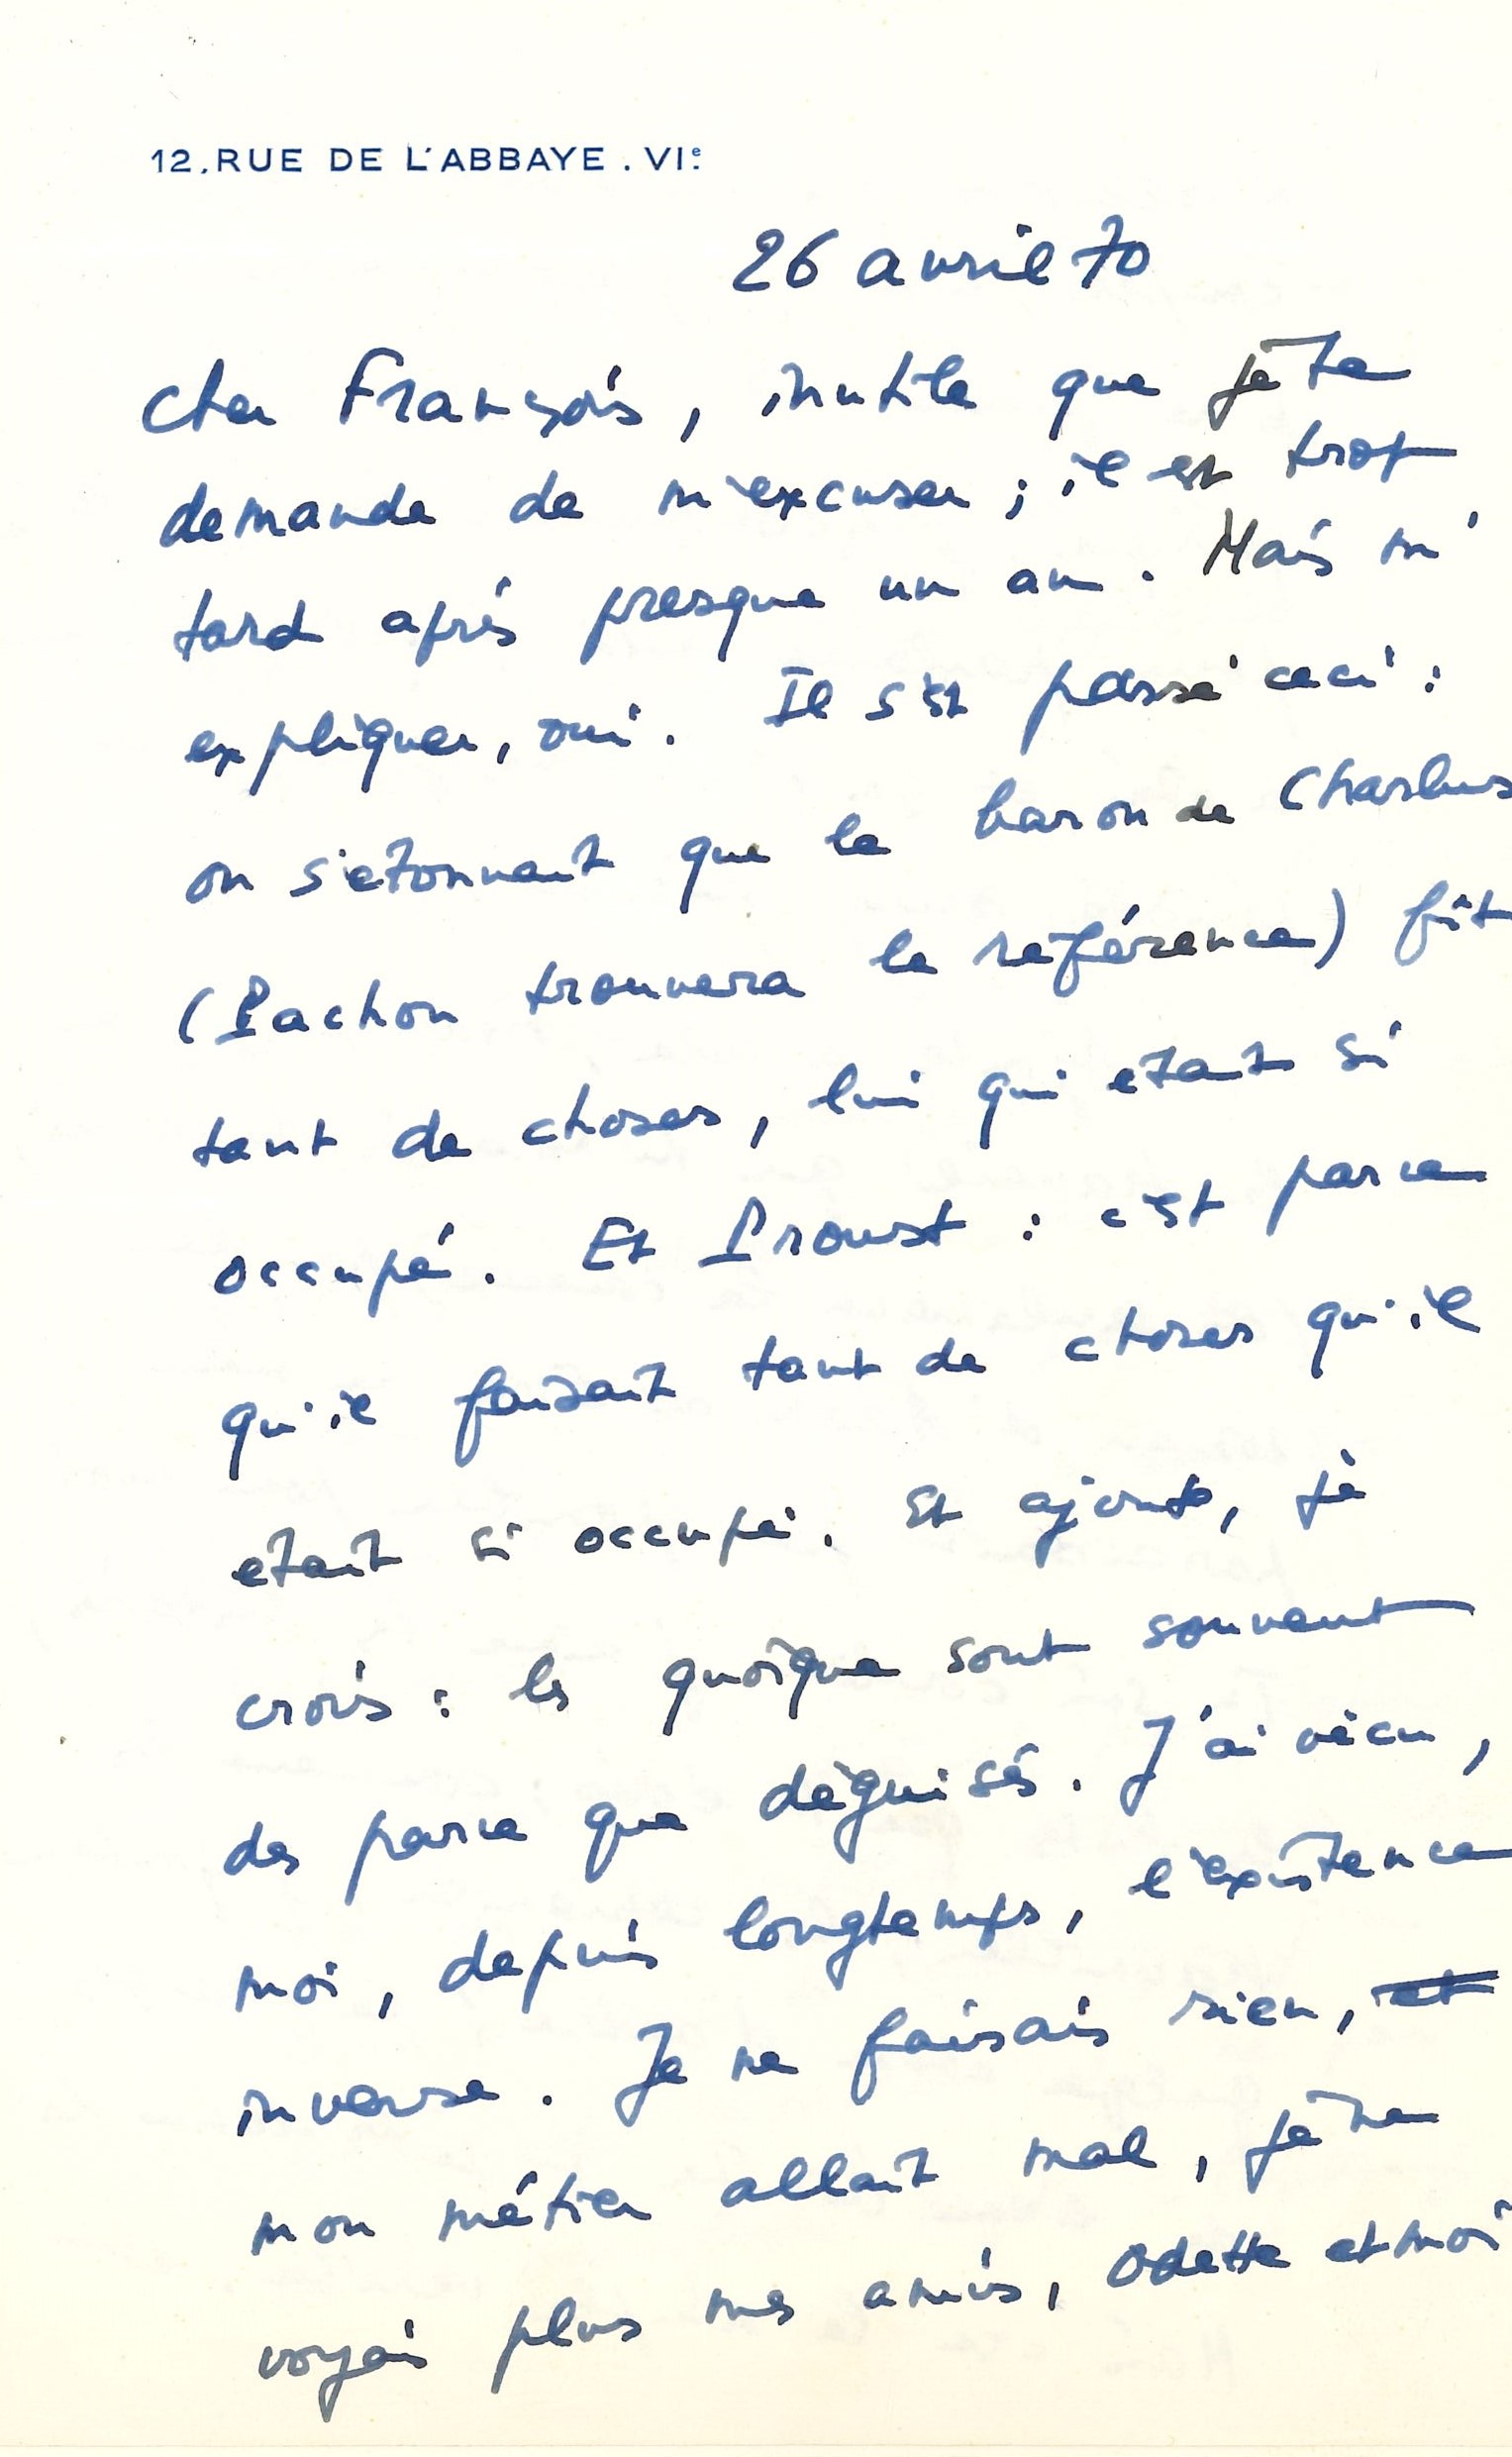 12, RUE DE L'ABBAYE . VIe
26 avril 70
Cher François, inutile que je te
demande de m'excuser ; il est trop
tard après presque un an. Mais m'
expliquer, oui. Il s'est passé ceci :
on s'étonnait que le baron de Charlus
(Pachon trouvera la référence) fît
tant de choses, lui qui était si
occupé. Et Proust : c'est parce
qu'il faisait tant de choses qu'il
était si occupé. Et ajoute, je
crois : les quoique sont souvent
des parce que déguisés. J'ai vécu,
moi, depuis longtemps, l'existence
inverse. Je ne faisais rien, et
mon métier allait mal, je ne
voyais plus mes amis, Odette et moi